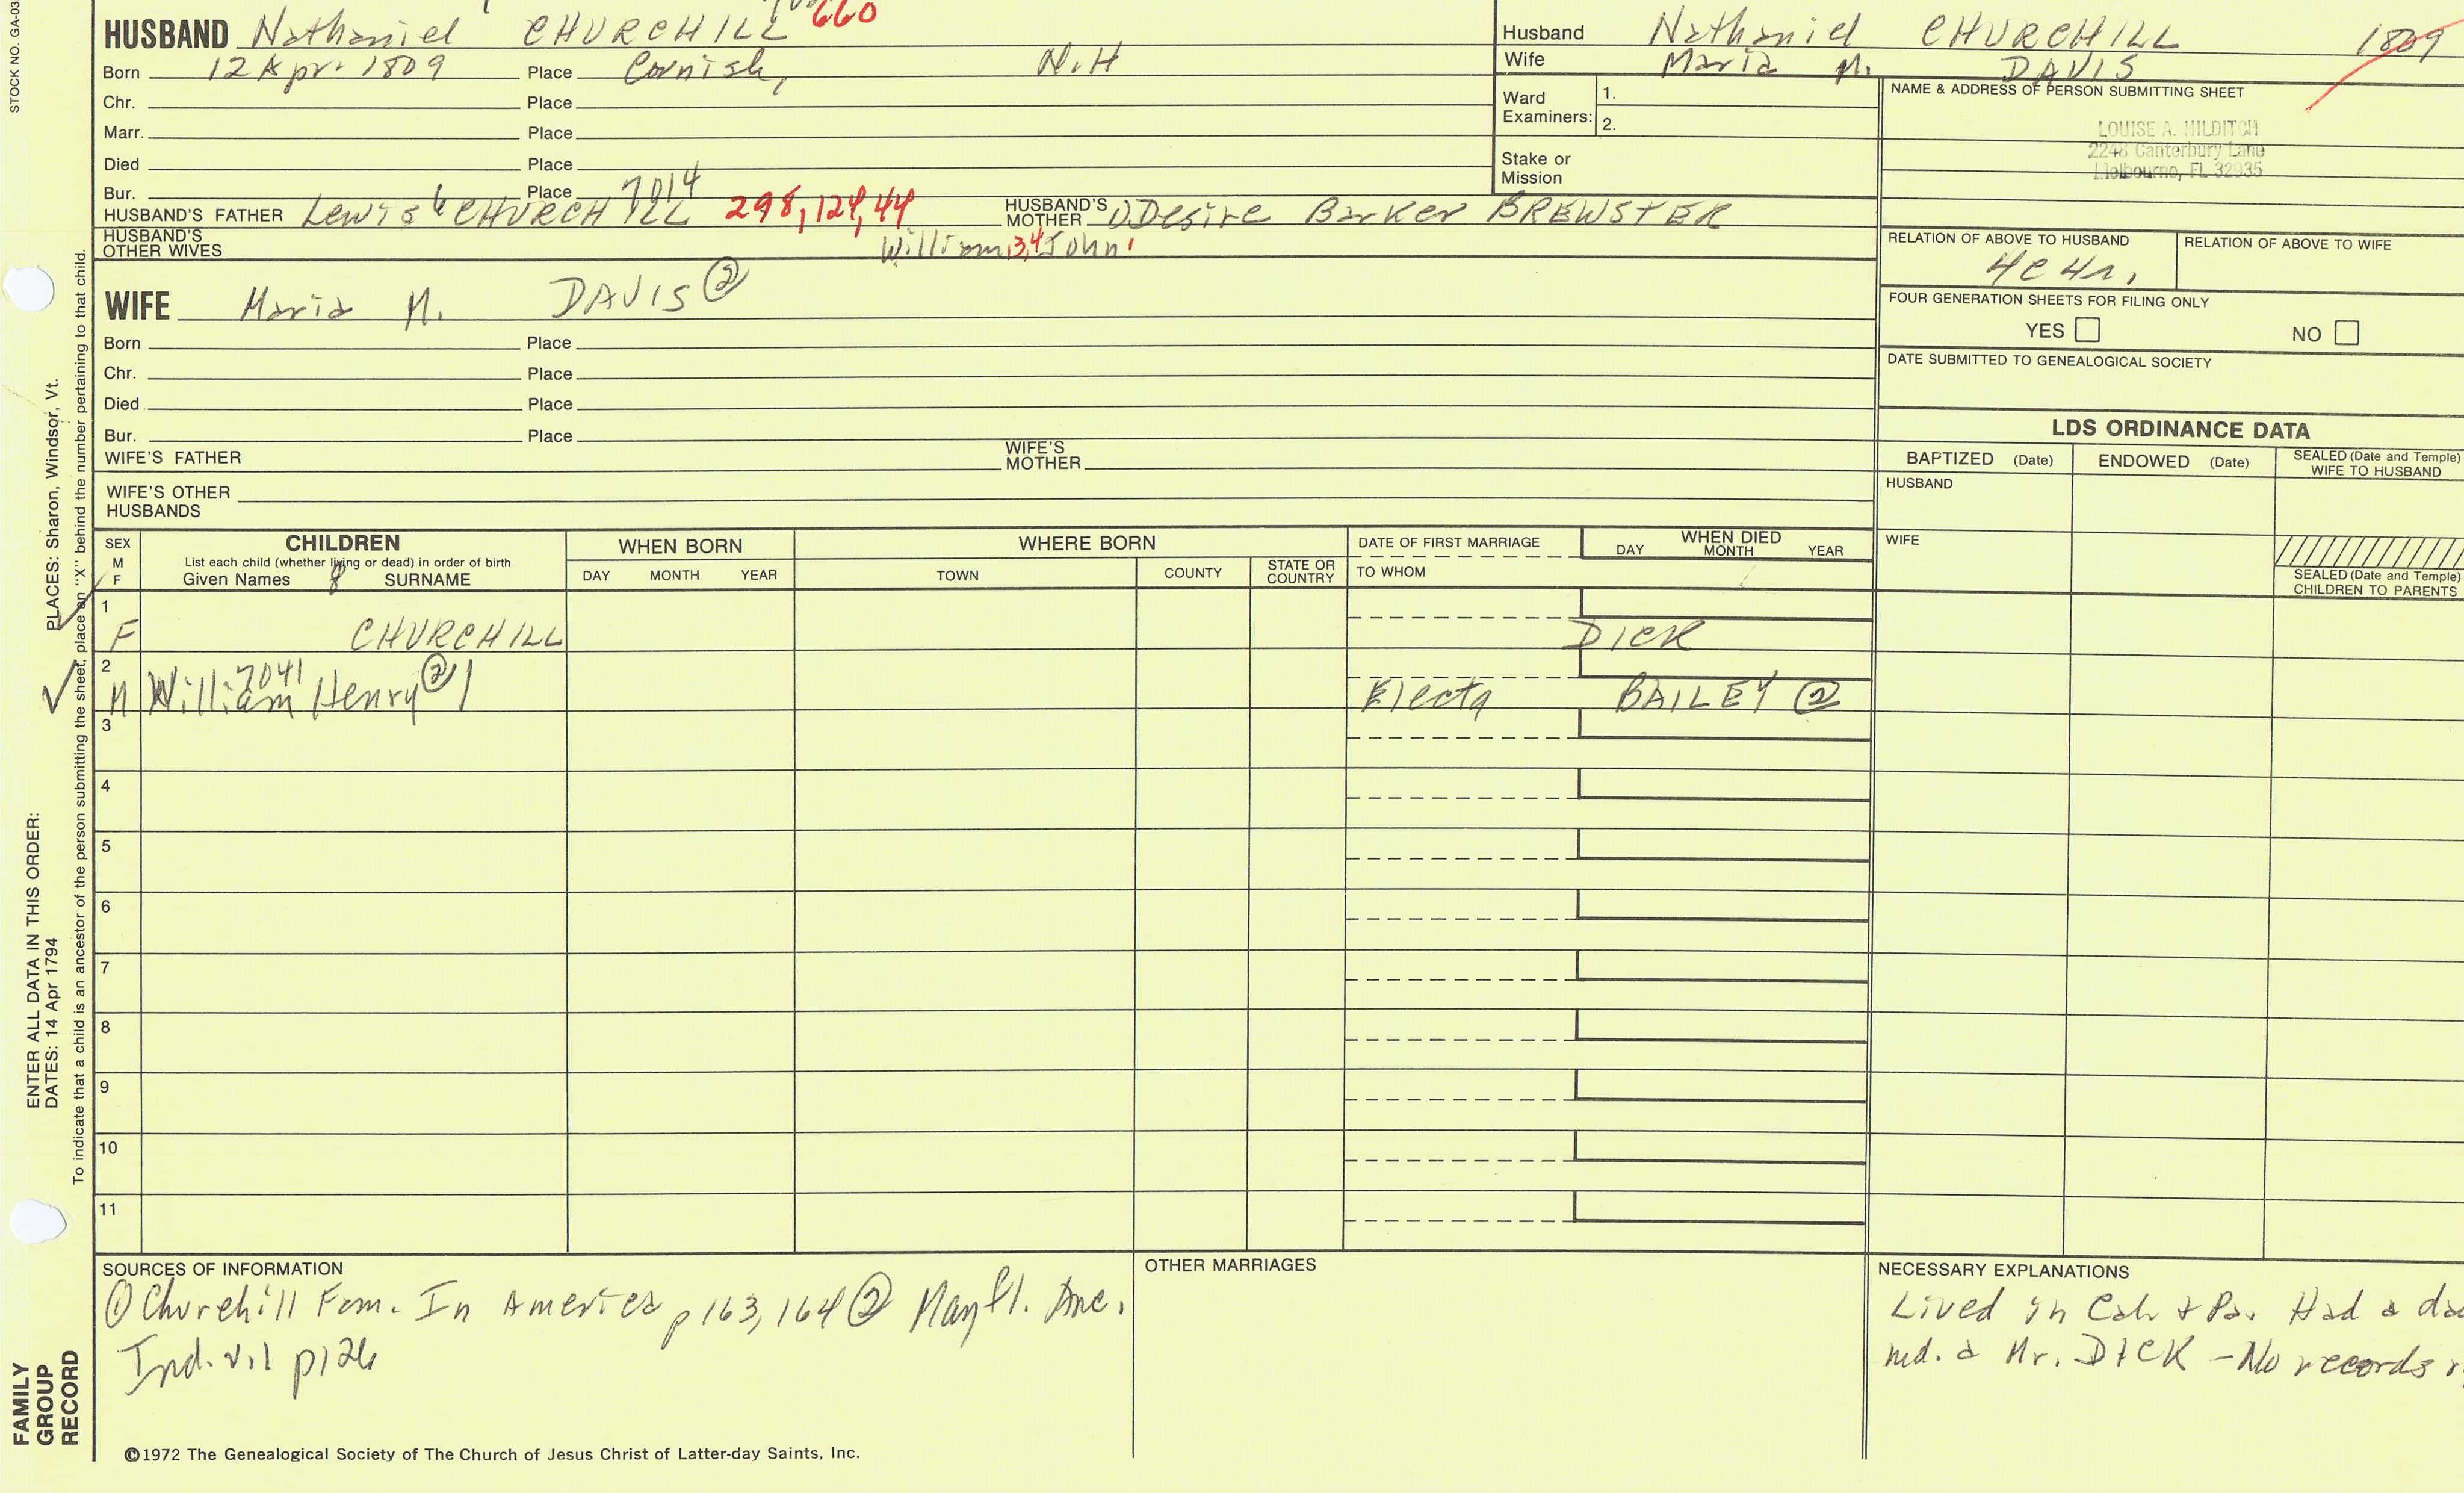 STOCK NO. GA-03
660
HUSBAND Nathaniel CHURCHILL
Born 12 Apr. 1809 Place Cornish, N.H
Chr. Place
Marr. Place
Died Place
Bur. Place 7014
HUSBAND'S FATHER Lewis 6 CHURCHILL 298, 124, 44 HUSBAND'S MOTHER ① Desire Barker BREWSTER
HUSBAND'S OTHER WIVES William 3,4 John 1
WIFE Maria M. DAVIS ②
Born Place
Chr. Place
Died Place
Bur. Place
WIFE'S FATHER WIFE'S MOTHER
WIFE'S OTHER HUSBANDS
Husband Nathaniel CHURCHILL 1809
Wife Maria M. DAVIS
Ward Examiners: 1.
2.
Stake or Mission
NAME & ADDRESS OF PERSON SUBMITTING SHEET
LOUISE A. HILDITCH
2248 Canterbury Lane
Melbourne, FL 32935
RELATION OF ABOVE TO HUSBAND RELATION OF ABOVE TO WIFE
4C4r,
FOUR GENERATION SHEETS FOR FILING ONLY
YES NO
DATE SUBMITTED TO GENEALOGICAL SOCIETY
LDS ORDINANCE DATA
BAPTIZED (Date) ENDOWED (Date) SEALED (Date and Temple) WIFE TO HUSBAND
HUSBAND
WIFE
SEALED (Date and Temple) CHILDREN TO PARENTS
SEX M F
CHILDREN
List each child (whether living or dead) in order of birth
Given Names 8 SURNAME
WHEN BORN
DAY MONTH YEAR
WHERE BORN
TOWN COUNTY STATE OR COUNTRY
DATE OF FIRST MARRIAGE
TO WHOM
WHEN DIED
DAY MONTH YEAR
1
F CHURCHILL DICK
2 7041
M William Henry ② Electa BAILEY ②
3
4
5
6
7
8
9
10
11
SOURCES OF INFORMATION
① Churchill Fam. In America p 163, 164 ② Mayfl. Anc.
Ind. VII p126
OTHER MARRIAGES
NECESSARY EXPLANATIONS
Lived in Cal. & Pa. Had a da
md. a Mr. DICK - No records
©1972 The Genealogical Society of The Church of Jesus Christ of Latter-day Saints, Inc.
FAMILY
GROUP
RECORD
ENTER ALL DATA IN THIS ORDER:
DATES: 14 Apr 1794 PLACES: Sharon, Windsor, Vt.
To indicate that a child is an ancestor of the person submitting the sheet, place an "X" behind the number pertaining to that child.